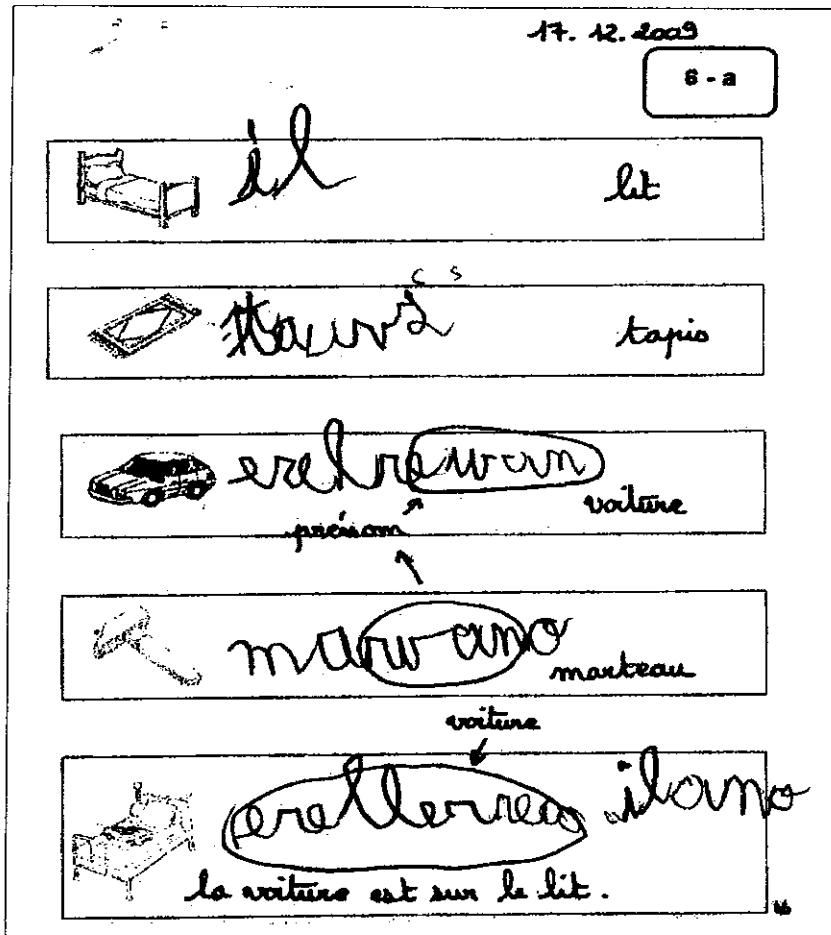 17. 12. 2009
6 - a
il
lit
c s
tapis
erelrewan
voiture
prénom
marwano
marteau
voiture
ilano
la voiture est sur le lit.